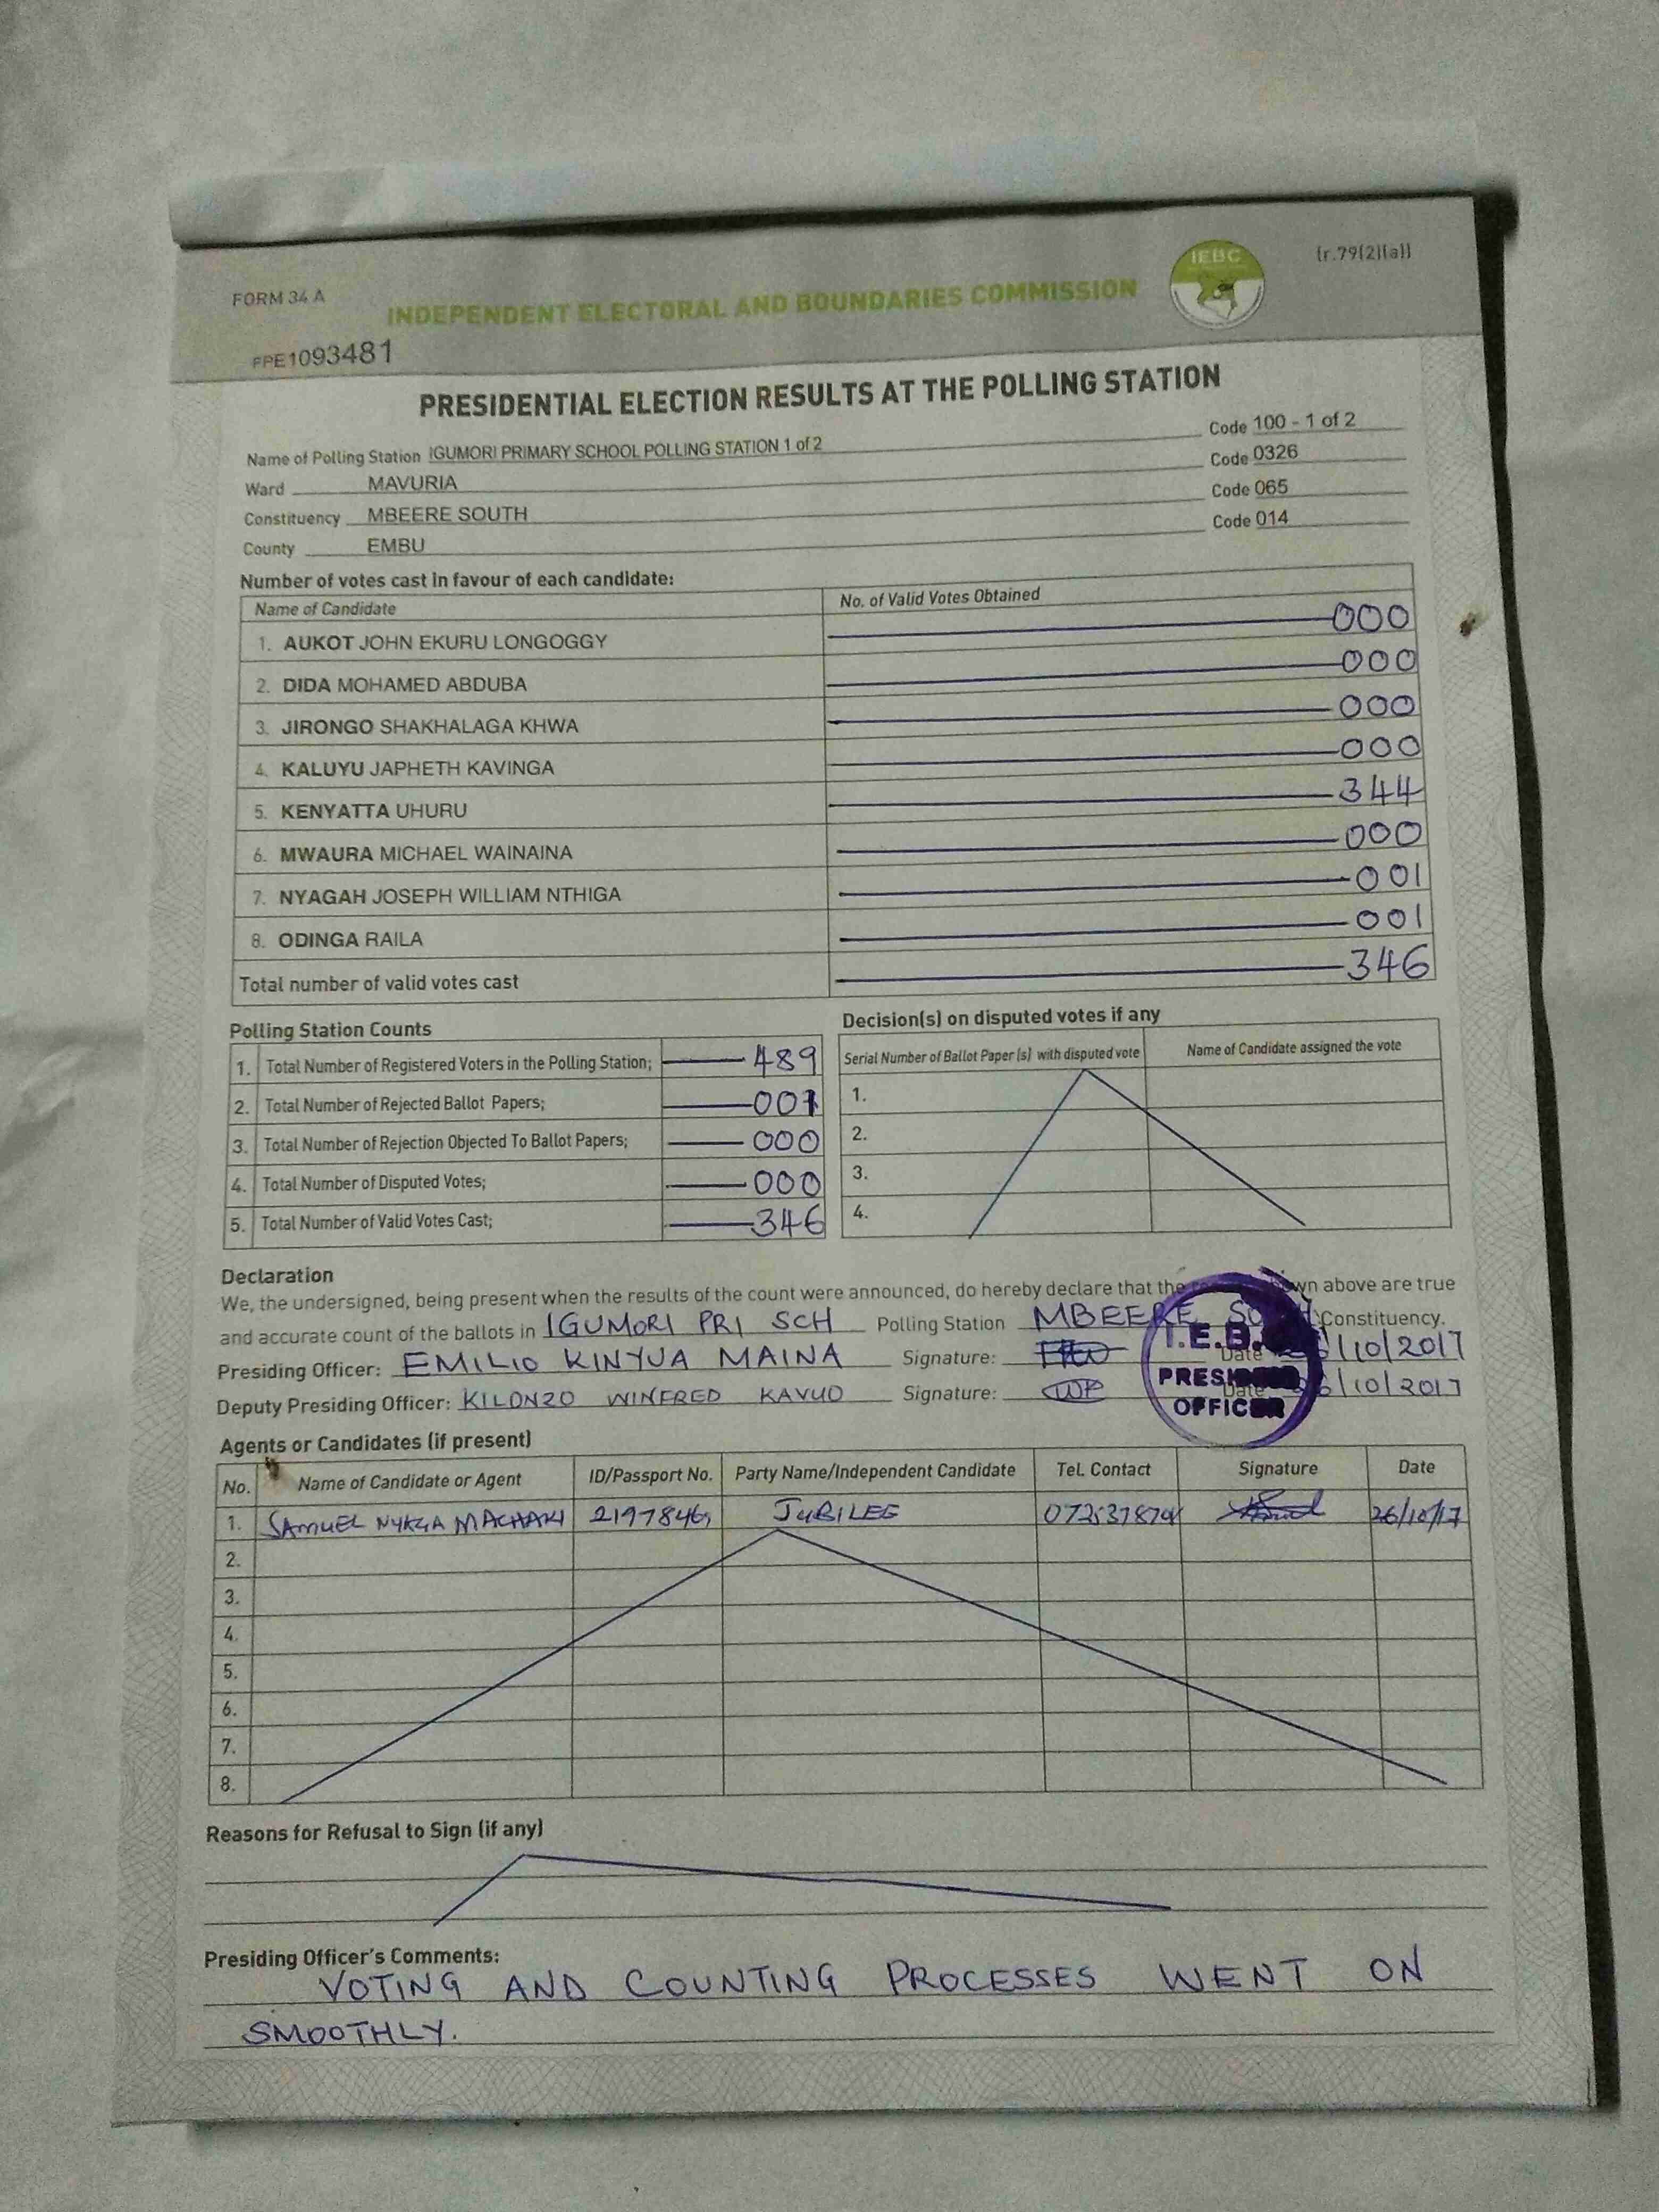 IEBC
(r.79(2)(a))
FORM 34 A
INDEPENDENT ELECTORAL AND BOUNDARIES COMMISSION
PPE1093481
PRESIDENTIAL ELECTION RESULTS AT THE POLLING STATION
Name of Polling Station IGUMORI PRIMARY SCHOOL POLLING STATION 1 of 2 Code 100 - 1 of 2
Ward MAVURIA Code 0326
Constituency MBEERE SOUTH Code 065
County EMBU Code 014
Number of votes cast in favour of each candidate:
Name of Candidate No. of Valid Votes Obtained
1. AUKOT JOHN EKURU LONGOGGY 000
2. DIDA MOHAMED ABDUBA 000
3. JIRONGO SHAKHALAGA KHWA 000
4. KALUYU JAPHETH KAVINGA 000
5. KENYATTA UHURU 344
6. MWAURA MICHAEL WAINAINA 000
7. NYAGAH JOSEPH WILLIAM NTHIGA 001
8. ODINGA RAILA 001
Total number of valid votes cast 346
Polling Station Counts
1. Total Number of Registered Voters in the Polling Station; 489
2. Total Number of Rejected Ballot Papers; 001
3. Total Number of Rejection Objected To Ballot Papers; 000
4. Total Number of Disputed Votes; 000
5. Total Number of Valid Votes Cast; 346
Decision(s) on disputed votes if any
Serial Number of Ballot Paper (s) with disputed vote Name of Candidate assigned the vote
1.
2.
3.
4.
Declaration
We, the undersigned, being present when the results of the count were announced, do hereby declare that the shown above are true
and accurate count of the ballots in IGUMORI PRI SCH Polling Station MBEERE Constituency.
Presiding Officer: EMILIO KINYUA MAINA Signature: Date /10/2017
Deputy Presiding Officer: KILONZO WINFRED KAVUO Signature: Date 26/10/2017
I.E.B.C
PRESIDING
OFFICER
Agents or Candidates (if present)
No. Name of Candidate or Agent ID/Passport No. Party Name/Independent Candidate Tel. Contact Signature Date
1. SAMUEL NYAGA MACHAKI JUBILEE 26/10/17
2.
3.
4.
5.
6.
7.
8.
Reasons for Refusal to Sign (if any)
Presiding Officer's Comments:
VOTING AND COUNTING PROCESSES WENT ON
SMOOTHLY.